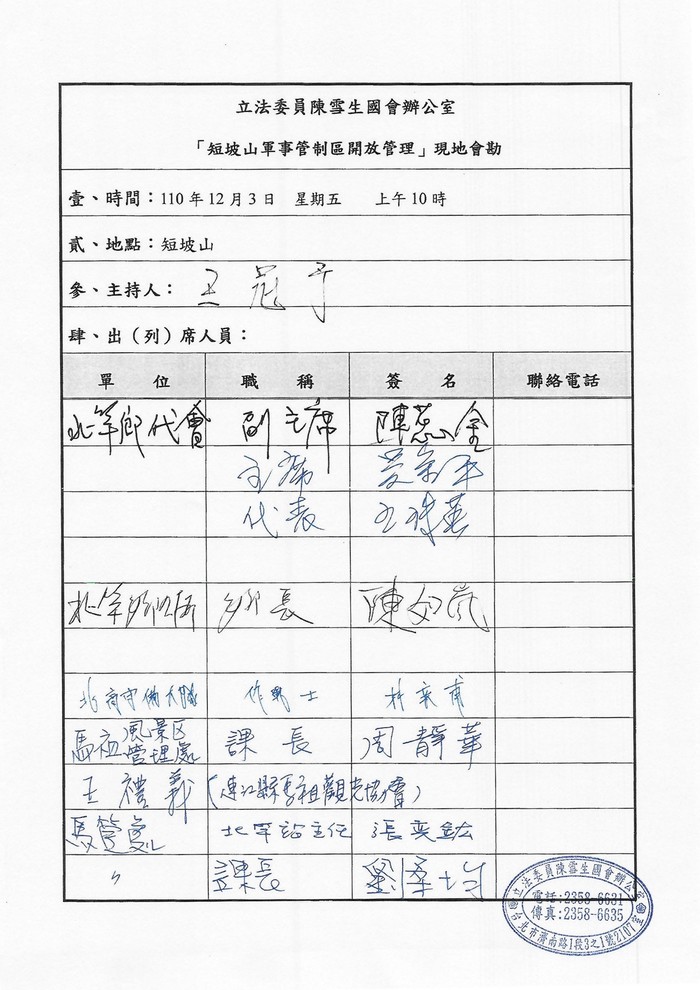 立法委員陳雪生國會辦公室
「短坡山軍事管制區開放管理」現地會勘
壹、時間：110年12月3日 星期五 上午10時
貳、地點：短坡山
參、主持人：王
肆、出（列）席人員：
單 位 職 稱 簽 名 聯絡電話
北竿鄉代會 副主席 陳蕊金
主席
代表 王
北竿鄉公所 鄉長 陳如嵐
北高守備大隊 作戰士 林
馬祖風景区管理處 課長 周靜華
王禮義（連江縣馬祖觀光協會）
馬管處 北竿站主任 張奕鈜
〃 課長 劉
立法委員陳雪生國會辦公室
電話:2358-6631
傳真:2358-6635
台北市濟南路1段3之1號2107室